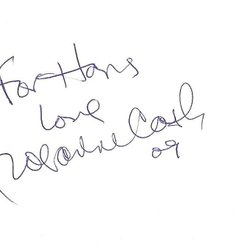 For Hans
Love
Rosanne Cash
09